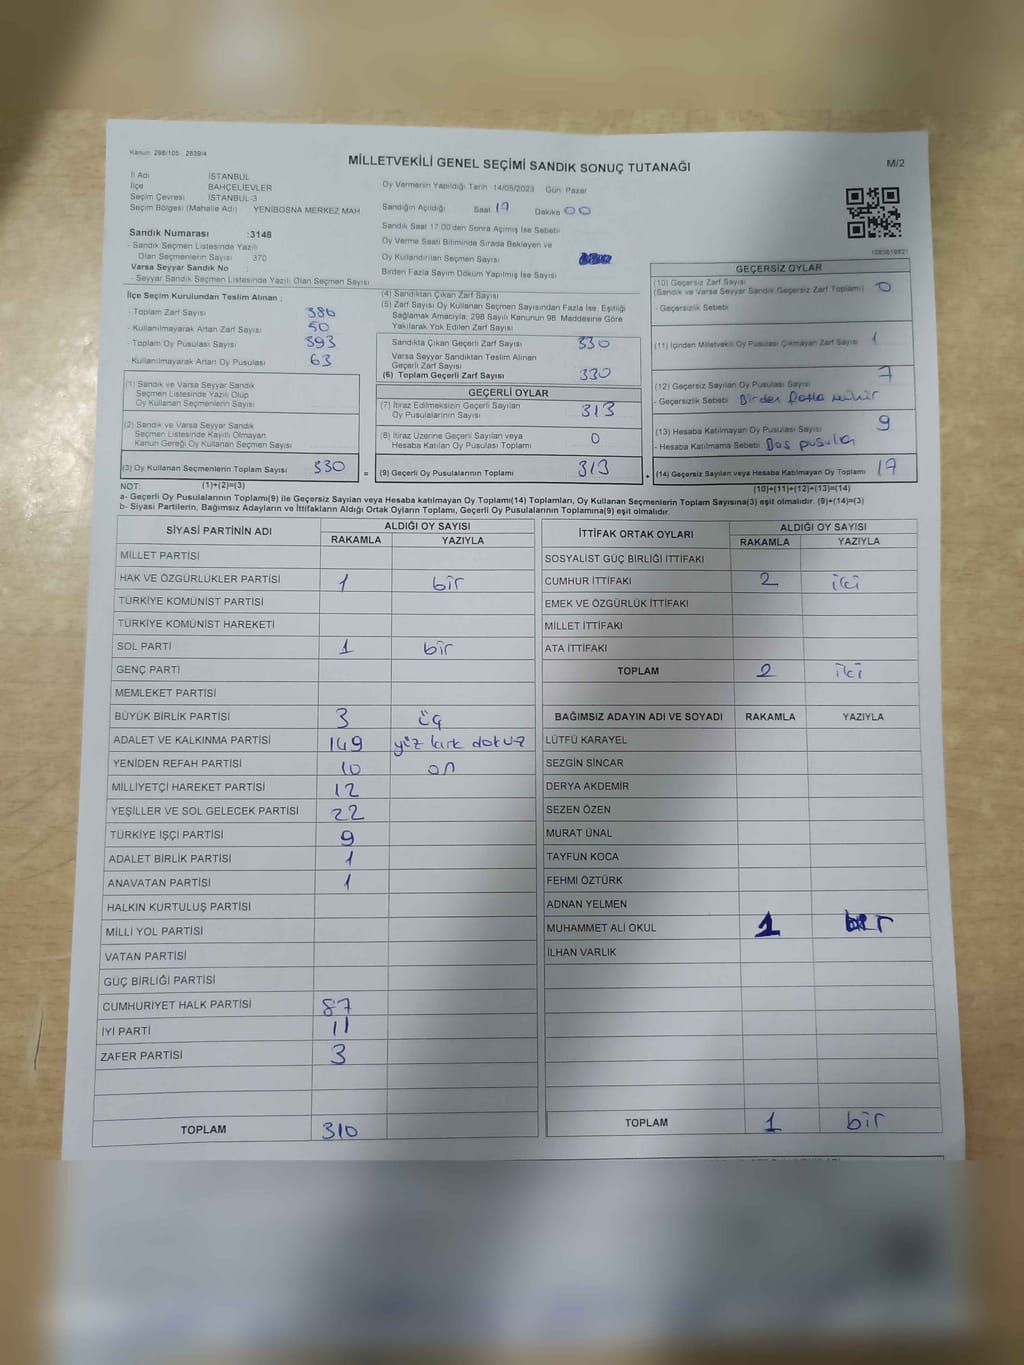 Kanun: 298/105 , 2839/4
MİLLETVEKİLİ GENEL SEÇİMİ SANDIK SONUÇ TUTANAĞI
M/2
İl Adı İSTANBUL
İlçe BAHÇELİEVLER
Seçim Çevresi İSTANBUL-3
Seçim Bölgesi (Mahalle Adı) YENİBOSNA MERKEZ MAH
Oy Vermenin Yapıldığı Tarih :14/05/2023 Gün: Pazar
Sandığın Açıldığı Saat 17 Dakika 00
Sandık Saat 17:00'den Sonra Açılmış İse Sebebi
Oy Verme Saati Bitiminde Sırada Bekleyen ve
Oy Kullandırılan Seçmen Sayısı
Birden Fazla Sayım Döküm Yapılmış İse Sayısı
Sandık Numarası :3148
- Sandık Seçmen Listesinde Yazılı
Olan Seçmenlerin Sayısı 370
Varsa Seyyar Sandık No
- Seyyar Sandık Seçmen Listesinde Yazılı Olan Seçmen Sayısı
İlçe Seçim Kurulundan Teslim Alınan ;
- Toplam Zarf Sayısı 386
- Kullanılmayarak Artan Zarf Sayısı 50
- Toplam Oy Pusulası Sayısı 393
- Kullanılmayarak Artan Oy Pusulası 63
(1) Sandık ve Varsa Seyyar Sandık
Seçmen Listesinde Yazılı Olup
Oy Kullanan Seçmenlerin Sayısı
(2) Sandık ve Varsa Seyyar Sandık
Seçmen Listesinde Kayıtlı Olmayan
Kanun Gereği Oy Kullanan Seçmen Sayısı
(3) Oy Kullanan Seçmenlerin Toplam Sayısı 330
(1)+(2)=(3)
(4) Sandıktan Çıkan Zarf Sayısı
(5) Zarf Sayısı Oy Kullanan Seçmen Sayısından Fazla İse, Eşitliği
Sağlamak Amacıyla, 298 Sayılı Kanunun 98. Maddesine Göre
Yakılarak Yok Edilen Zarf Sayısı
Sandıkta Çıkan Geçerli Zarf Sayısı 330
Varsa Seyyar Sandıktan Teslim Alınan
Geçerli Zarf Sayısı
(6) Toplam Geçerli Zarf Sayısı 330
GEÇERLİ OYLAR
(7) İtiraz Edilmeksizin Geçerli Sayılan
Oy Pusulalarının Sayısı 313
(8) İtiraz Üzerine Geçerli Sayılan veya
Hesaba Katılan Oy Pusulası Toplamı 0
= (9) Geçerli Oy Pusulalarının Toplamı 313
GEÇERSİZ OYLAR
(10) Geçersiz Zarf Sayısı
(Sandık ve Varsa Seyyar Sandık Geçersiz Zarf Toplamı) 0
- Geçersizlik Sebebi
(11) İçinden Milletvekili Oy Pusulası Çıkmayan Zarf Sayısı 1
(12) Geçersiz Sayılan Oy Pusulası Sayısı 7
- Geçersizlik Sebebi Birden fazla mühür
(13) Hesaba Katılmayan Oy Pusulası Sayısı 9
- Hesaba Katılmama Sebebi Boş pusula
+ (14) Geçersiz Sayılan veya Hesaba Katılmayan Oy Toplamı 17
(10)+(11)+(12)+(13)=(14)
NOT:
a- Geçerli Oy Pusulalarının Toplamı(9) ile Geçersiz Sayılan veya Hesaba katılmayan Oy Toplamı(14) Toplamları, Oy Kullanan Seçmenlerin Toplam Sayısına(3) eşit olmalıdır. (9)+(14)=(3)
b- Siyasi Partilerin, Bağımsız Adayların ve İttifakların Aldığı Ortak Oyların Toplamı, Geçerli Oy Pusulalarının Toplamına(9) eşit olmalıdır.
SİYASİ PARTİNİN ADI ALDIĞI OY SAYISI
RAKAMLA YAZIYLA
MİLLET PARTİSİ
HAK VE ÖZGÜRLÜKLER PARTİSİ 1 bir
TÜRKİYE KOMÜNİST PARTİSİ
TÜRKİYE KOMÜNİST HAREKETİ
SOL PARTİ 1 bir
GENÇ PARTİ
MEMLEKET PARTİSİ
BÜYÜK BİRLİK PARTİSİ 3 üç
ADALET VE KALKINMA PARTİSİ 149 yüz kırk dokuz
YENİDEN REFAH PARTİSİ 10 on
MİLLİYETÇİ HAREKET PARTİSİ 12
YEŞİLLER VE SOL GELECEK PARTİSİ 22
TÜRKİYE İŞÇİ PARTİSİ 9
ADALET BİRLİK PARTİSİ 1
ANAVATAN PARTİSİ 1
HALKIN KURTULUŞ PARTİSİ
MİLLİ YOL PARTİSİ
VATAN PARTİSİ
GÜÇ BİRLİĞİ PARTİSİ
CUMHURİYET HALK PARTİSİ 87
İYİ PARTİ 11
ZAFER PARTİSİ 3
TOPLAM 310
İTTİFAK ORTAK OYLARI ALDIĞI OY SAYISI
RAKAMLA YAZIYLA
SOSYALİST GÜÇ BİRLİĞİ İTTİFAKI
CUMHUR İTTİFAKI 2 iki
EMEK VE ÖZGÜRLÜK İTTİFAKI
MİLLET İTTİFAKI
ATA İTTİFAKI
TOPLAM 2 iki
BAĞIMSIZ ADAYIN ADI VE SOYADI RAKAMLA YAZIYLA
LÜTFÜ KARAYEL
SEZGİN SİNCAR
DERYA AKDEMİR
SEZEN ÖZEN
MURAT ÜNAL
TAYFUN KOCA
FEHMİ ÖZTÜRK
ADNAN YELMEN
MUHAMMET ALİ OKUL 1 bir
İLHAN VARLIK
TOPLAM 1 bir